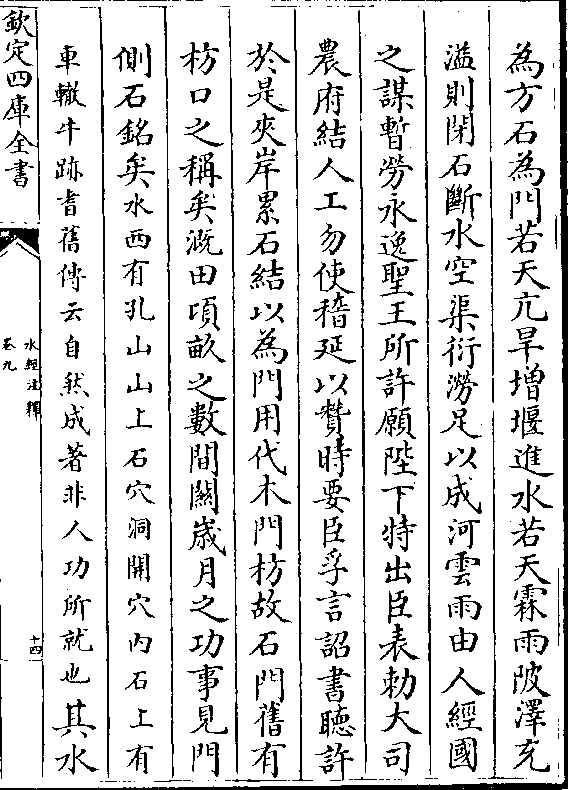 為方石為門若天亢旱增堰進水若天霖雨陂澤充
溢則閉石斷水空渠衍澇足以成河雲雨由人經國
之謀暫勞永逸聖王所許願陛下特出臣表勅大司
農府結人工勿使稽延以贊時要臣孚言詔書聽許
於是夾岸累石結以為門用代木門枋故石門舊有
枋口之稱矣溉田頃畝之數間關歲月之功事見門
側石銘矣水西有孔山山上石穴洞開穴内石上有
車轍牛跡耆舊傳云自然成著非人功所就也其水
欽定四庫全書
水經注釋
卷九
十四